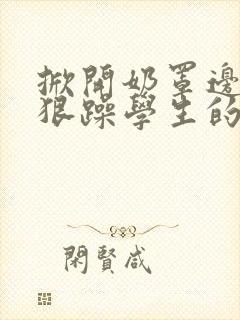 掀開奶罩邊
狠躁學生的
閑賢咸